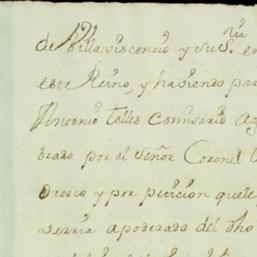 de Villavisencio y su S.ria en
este Reino, y haviendo par
Antonio Telles comisario Ag
brado por el Señor Coronel
Orosco y por peticion que le
verria apoderado del dho